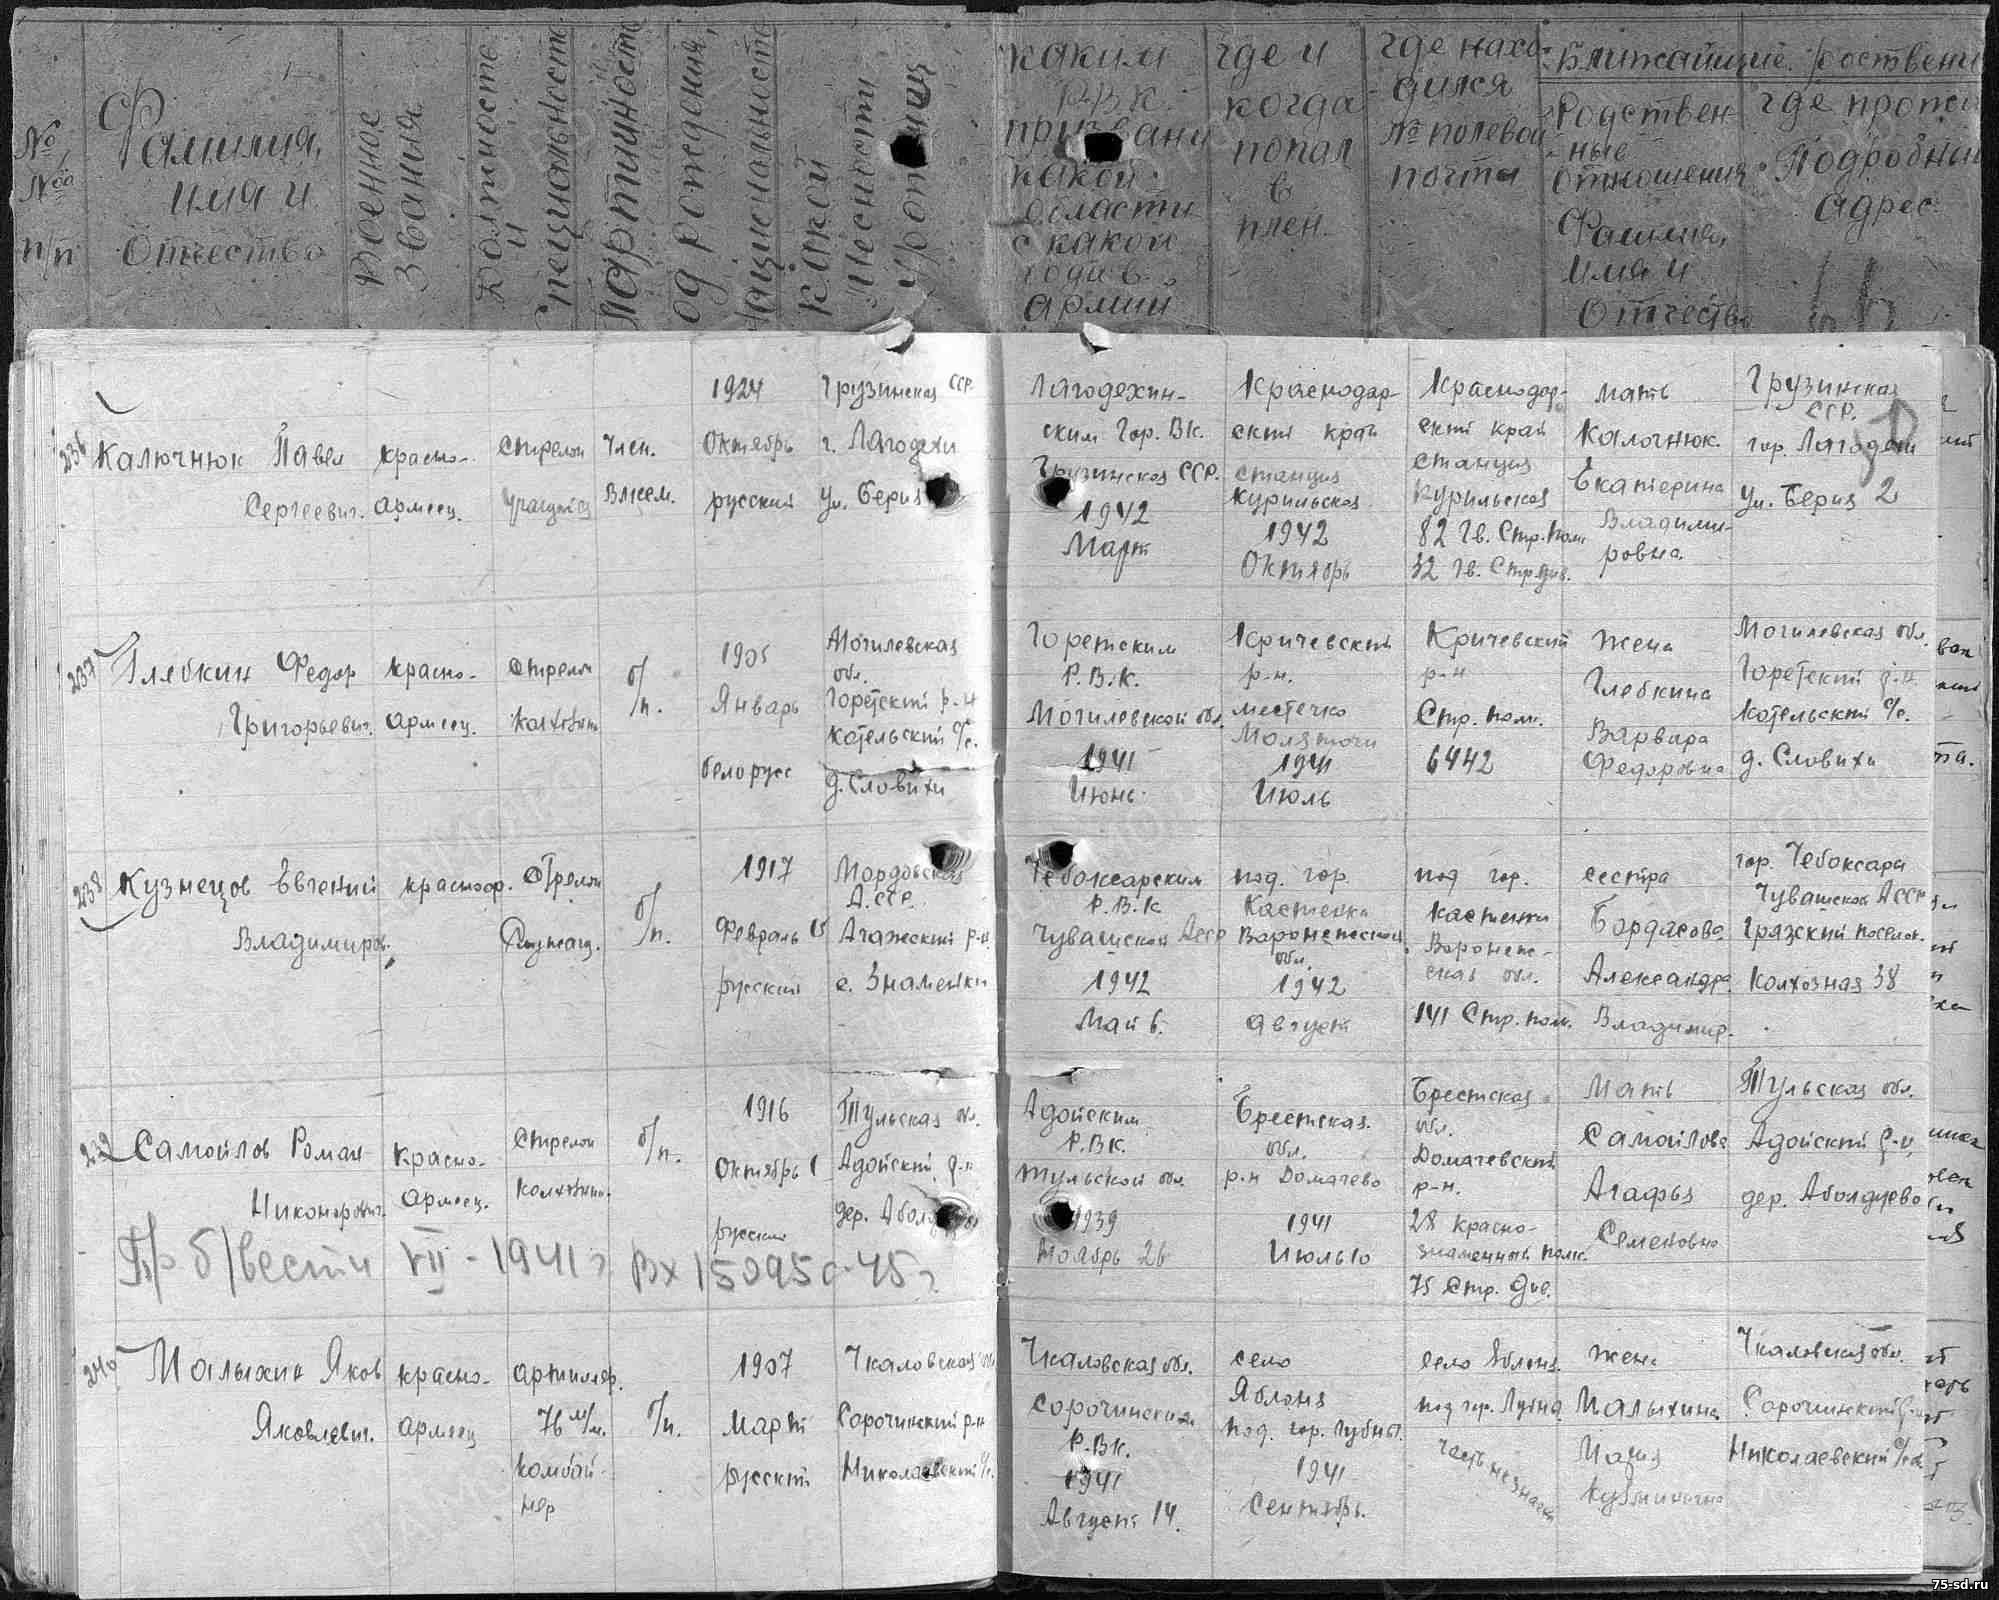 №№ п/п
Фамилия, имя и отчество
Военное звания
Должность и специальность
Партийность
Год рождения, национальность
Какой местности уроженец
каким Р.В.К. призвани какой области с какой годи в армий
где и когда попал в плен.
где нахо- дился № полевой почти
Ближайщие. родствени
Родствен- ные отношения Фамилия, имя и отчество
где прожи Подробный адрес
236
Калючнюк Павел
Сергеевич.
красно-
армеец.
стрелок
учащийся
Член.
Влксм.
1924
Октябрь
русский
Грузинская ССР.
г. Лагодехи
ул. Берия
Лагодехин-
ским Гор. ВК.
Грузинская ССР.
1942
Март
Краснодар-
ский край
станция
курильская
1942
Октябрь
Краснодар-
ский край
станция
курильская
82 Гв. Стр. полк
32 Гв. Стр. див.
мать
Калочнюк.
Екатерина
Владими-
ровна.
Грузинская
ССР.
гор. Лагодехи
ул. Берия 2
237
Глебкин Федор
Григорьевич.
красно-
армеец.
стрелок
колхозник
б/п.
1905
Январь
белорусс
Могилевская
обл.
Горетский р-н
Котельский с/с.
д. Словихи
Горетским
Р.В.К.
Могилевской обл.
1941
Июнь
Кричевский
р-н.
местечко
Молятичи
1941
Июль
Кричевский
р-н
Стр. полк.
6442
жена
Глебкина
Варвара
Федоровна
Могилевская обл.
Горетский р-н
Котельский с/с.
д. Словихи
238
Кузнецов Евгений
Владимиров.
красноар.
Стрелок
б/п.
1917
Февраль 15
русский
Мордовская
А.ССР.
Атяжеский р-н.
с. Знаменки
Чебоксарским
Р.В.К
Чувашской Асср
1942
Май 6.
под. гор.
Кастенки
Воронежской
обл.
1942
август
под гор.
кастенки
Воронеж-
ская обл.
141 Стр. полк.
сестра
Бардасова
Александра
Владимир.
гор. Чебоксари
Чувашской Асср
Грязский поселок.
Колхозная 38
239
Самойлов Роман
Никонорович.
Красно-
армеец.
Стрелок
колхозник.
б/п.
1916
Октябрь 1
русский
Тульская обл.
Адойский р-н
дер. Аболдуево
Адойским
Р.ВК.
Тульской обл.
1939
Ноябрь 26
Брестская.
обл.
р-н Домачево
1941
Июль 10
Брестская
обл.
Домачевский
р-н.
28 красно-
знаменный полк.
75 Стр. Див.
Мать
Самойлова
Агафья
Семеновна
Тульская обл.
Адойский р-н,
дер. Аболдуево
Пр. б/вести VII - 1941 г. Вх 15095с-45г
240
Малыхин Яков
Яковлевич.
красно-
армеец
артиллер.
76 м/м.
комбай-
нер
б/п.
1907
Март
русский
Чкаловская обл
Сорочинский р-н
Николаевский с/с.
Чкаловская обл.
Сорочинским
Р.ВК.
1941
Август 14.
село
Яблоня
под. гор. Лубны.
1941
Сентябрь.
село Яблоня.
под гор. Лубны
часть незнает
жена
Малыхина
Мария
Кузминична
Чкаловская обл.
Сорочинский р-н
Николаевский с/с.
75-sd.ru